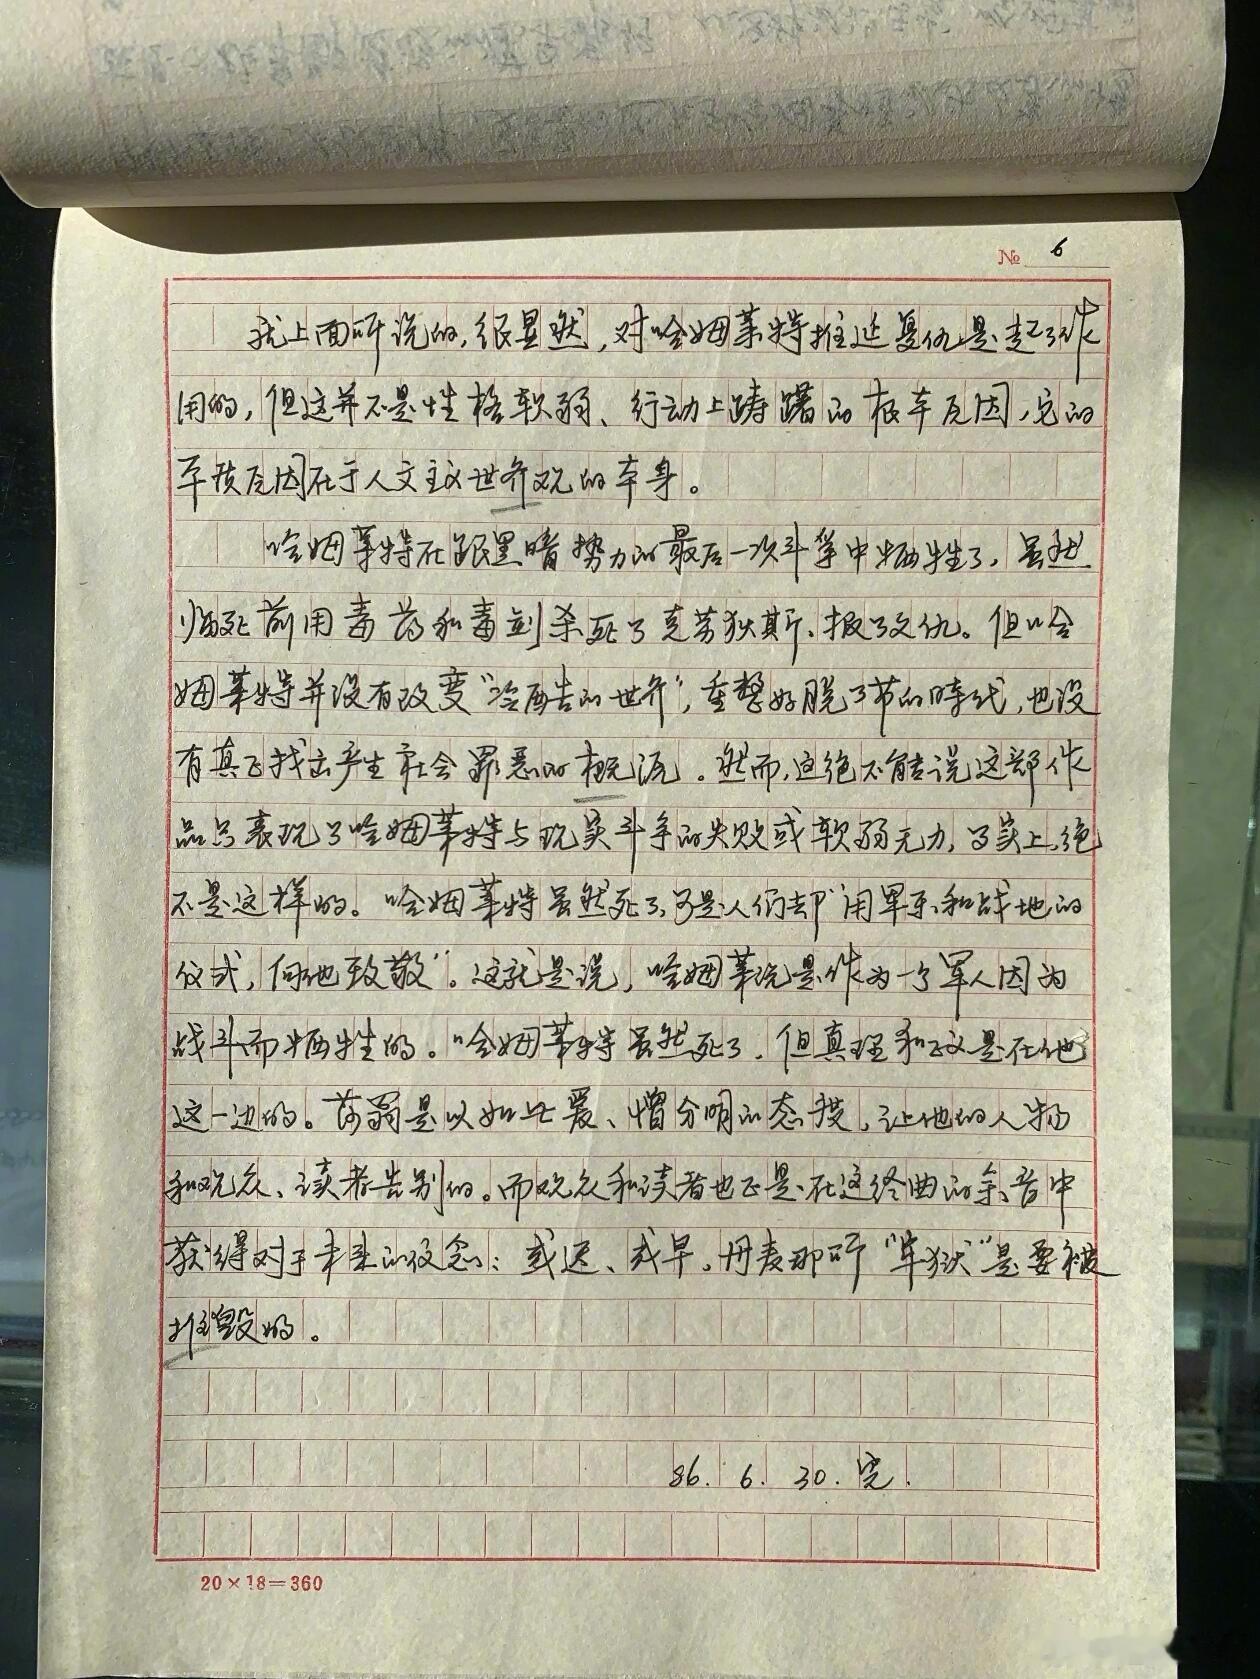 № 6
就上面所说的,很显然,对哈姆莱特推延复仇是起了作
用的,但这并不是性格软弱、行动上踌躇的根本原因,它的
本质原因在于人文主义世界观的本身。
哈姆莱特在跟黑暗势力的最后一次斗争中牺牲了,虽然
临死前用毒药和毒剑杀死了克劳狄斯、报了父仇。但哈
姆莱特并没有改变“冷酷的世界”,重整好脱了节的时代,也没
有真正找出产生社会罪恶的根源。然而,这绝不能说这部作
品只表现了哈姆莱特与现实斗争的失败或软弱无力,事实上,绝
不是这样的。哈姆莱特虽然死了,可是人们却“用军乐和战地的
仪式,向他致敬”。这就是说,哈姆莱说是作为一个军人因为
战斗而牺牲的。哈姆莱特虽然死了,但真理和正义是在他
这一边的。莎翁是以如此爱、憎分明的态度,让他的人物
和观众、读者告别的。而观众和读者也正是在这终曲的余音中
获得对于未来的信念:或迟、或早,丹麦那所“牢狱”是要被
摧毁的。
86.6.30.完.
20×18=360